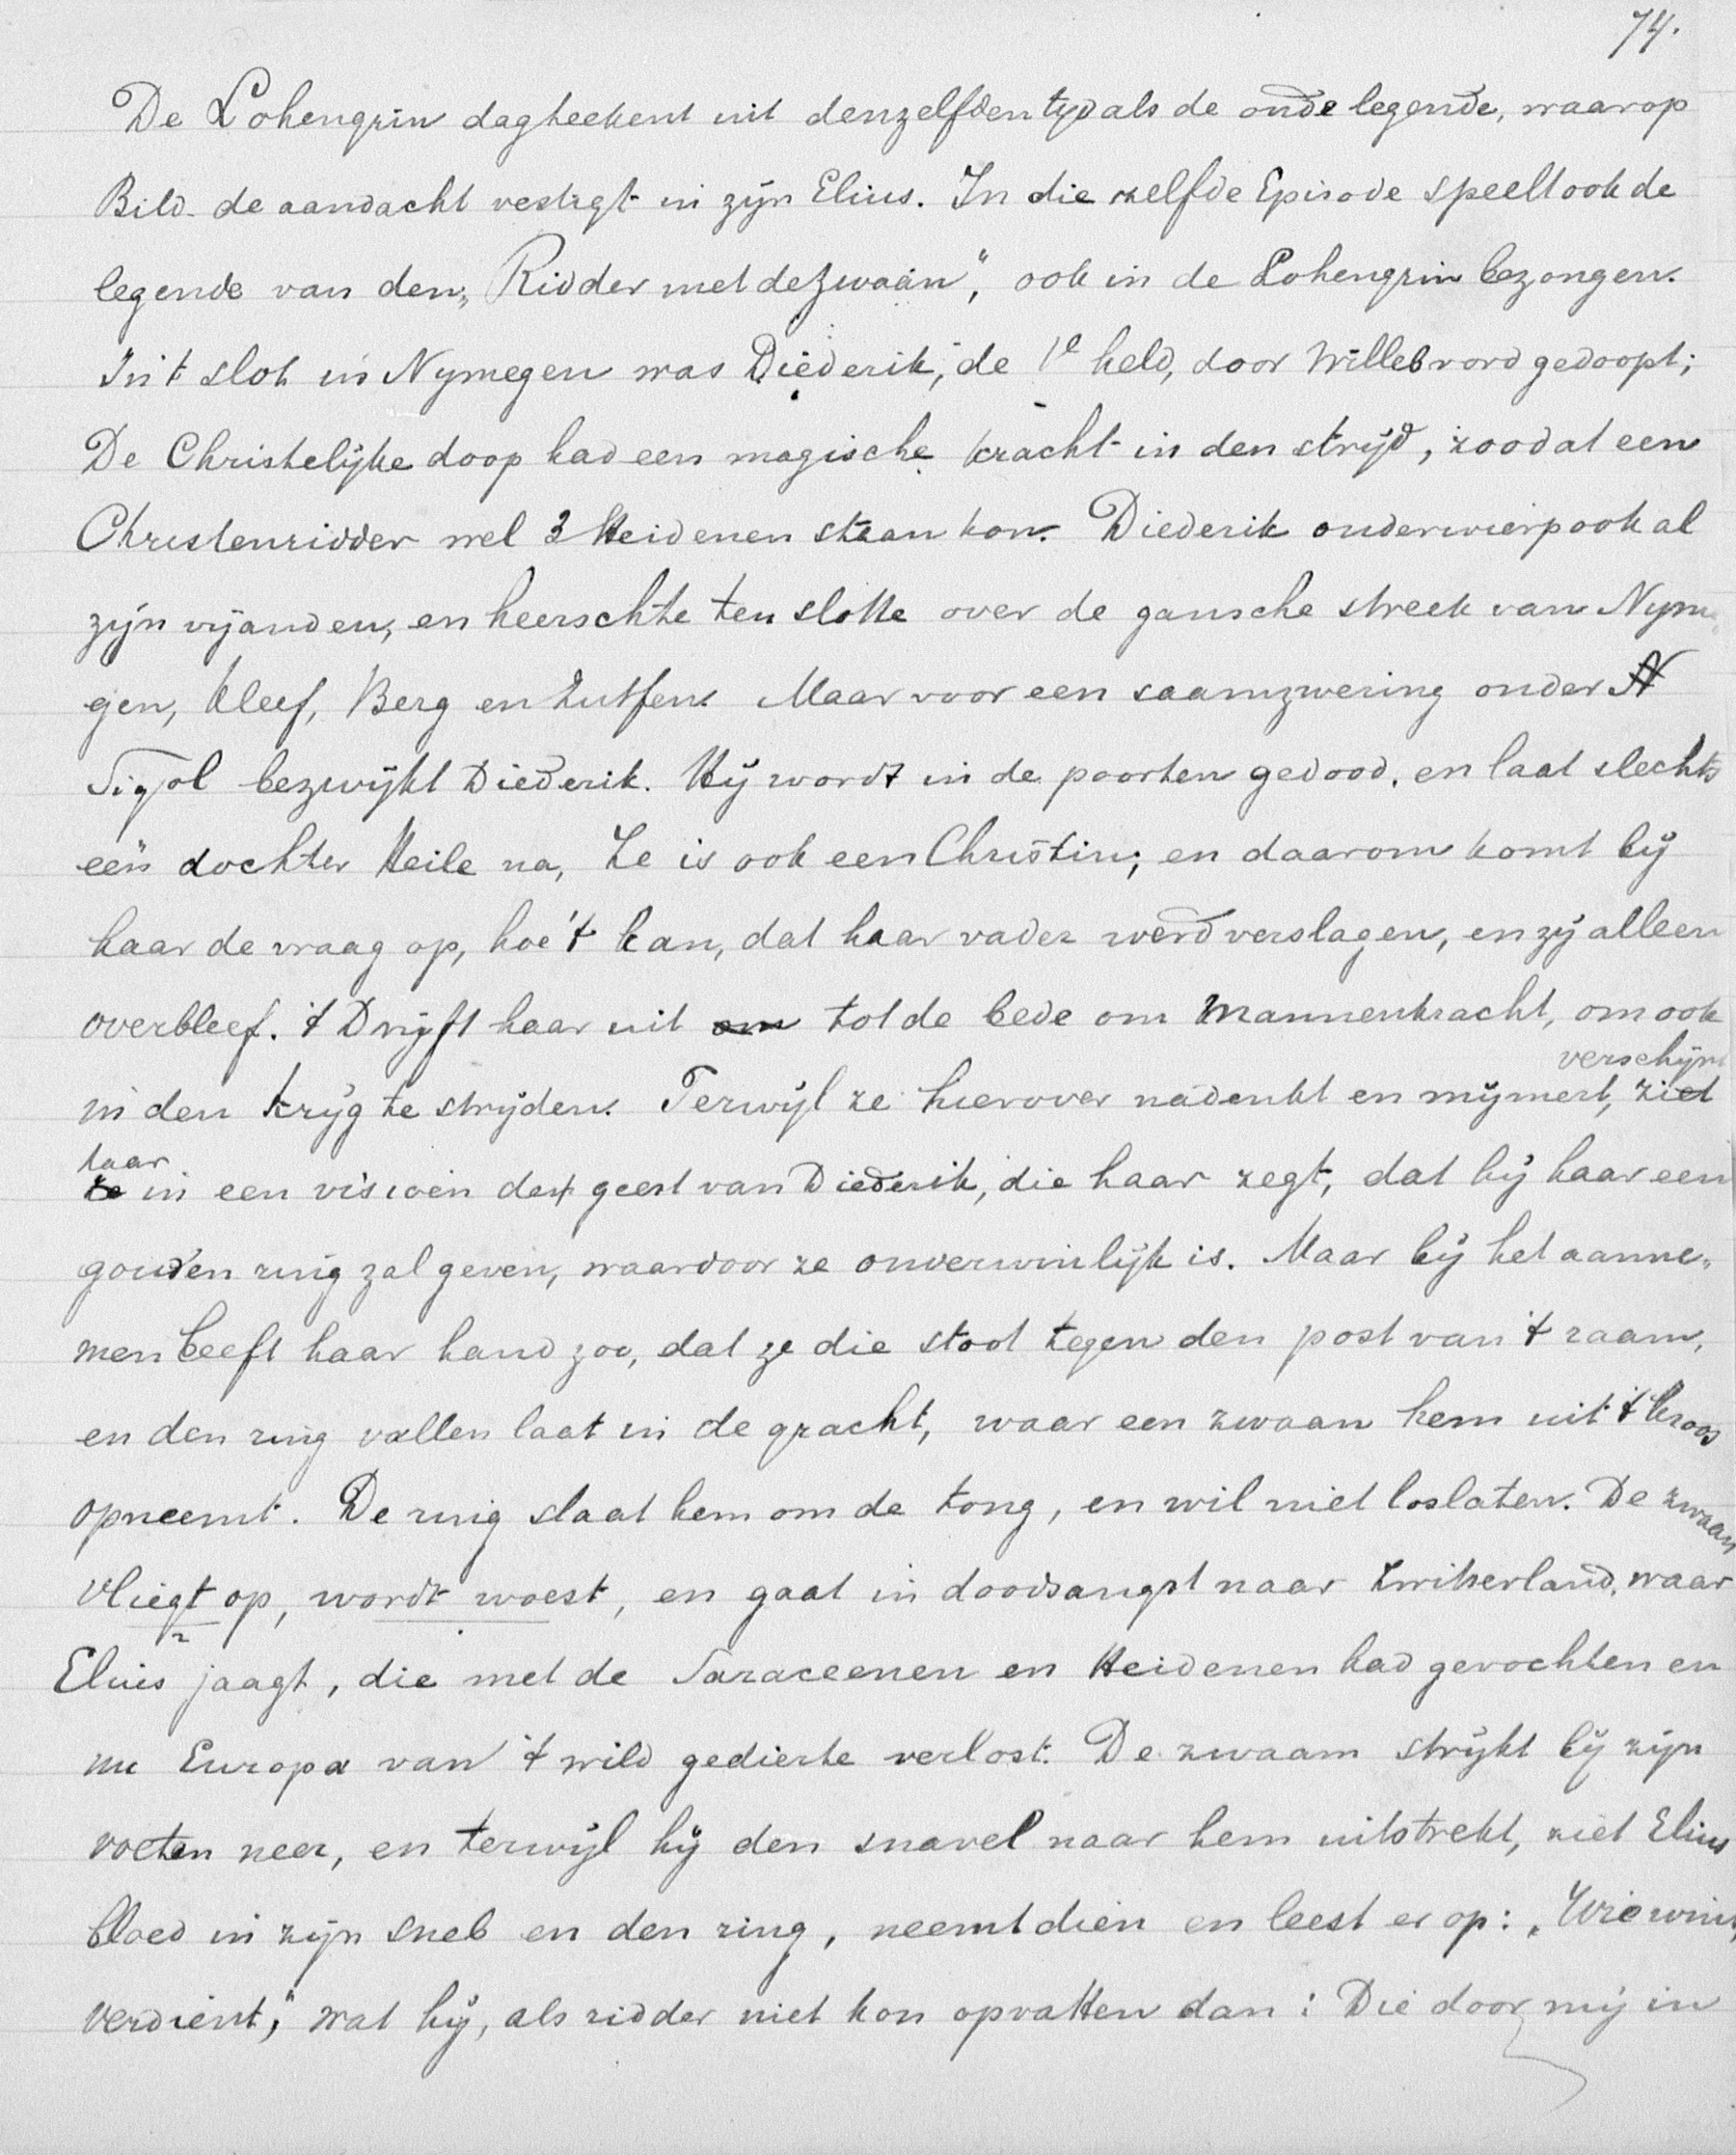 74.
De Lohengrin dagteekent uit denzelfden tyd als de oude legende, waarop
Bild. de aandacht vestigt in zijn Elius. In die zelfde Episode speelt ook de
legende van den „Ridder met de Zwaan", ook in de Lohengrin bezongen.
In 't slot in Nymegen was Diederik, de 1e held, door Willebrord gedoopt;
De Christelijke doop had een magische kracht in den strijd, zoodat een
Christenridder wel 3 Heidenen staan kon. Diederik onderwierp ook al
zijn vijanden, en heerschte ten slotte over de gansche streek van Nyme-
gen, Kleef, Berg en Zutfen. Maar voor een saamzwering onder N
Sigol bezwijkt Diederik. Hij wordt in de poorten gedood, en laat slechts
één dochter Heile na, Ze is ook een Christin; en daarom komt bij
haar de vraag op, hoe 't kan, dat haar vader werd verslagen, en zij alleen
overbleef. 't Drijft haar uit om tot de bede om mannenkracht, om ook
verschijnt
in den krijg te strijden. Terwijl ze hierover nadenkt en mijmert, ziet
haar
ze in een visioen de geest van Diederik, die haar zegt, dat hij haar een
gouden ring zal geven, waardoor ze onverwinlijk is. Maar bij het aanne-
men beeft haar hand zoo, dat ze die stoot tegen den post van 't raam,
en den ring vallen laat in de gracht, waar een zwaan hem uit 't kroos
opneemt. De ring slaat hem om de tong, en wil niet loslaten. De zwaan
vliegt op, wordt woest, en gaat in doodsangst naar Zwitserland, waar
Elius jaagt, die met de Saraceenen en Heidenen had gevochten en
nu Europa van 't wild gedierte verlost. De zwaam strijkt bij zijn
voeten neer, en terwijl hij den snavel naar hem uitstrekt, ziet Elius
bloed in zijn sneb en den ring, neemt dien en leest er op: „Wie wint,
verdient," wat hij, als ridder niet kon opvatten dan: Die door mij in